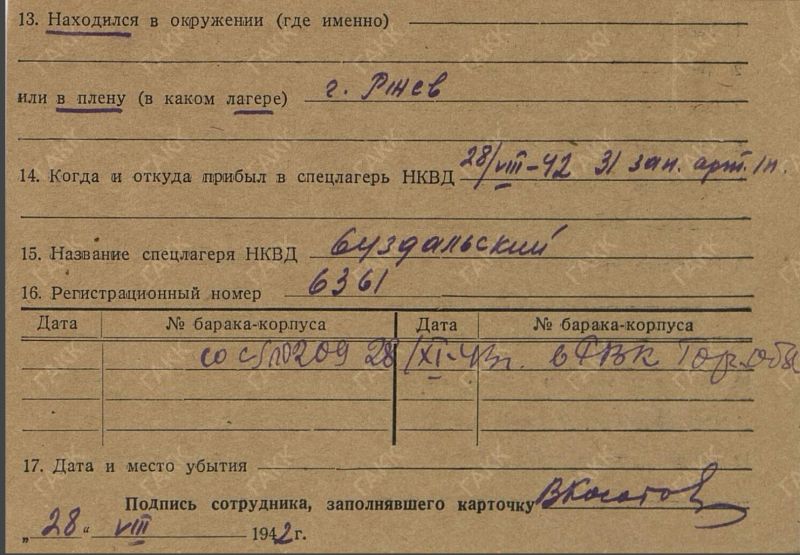 13. Находился в окружении (где именно)
или в плену (в каком лагере) г. Ржев
14. Когда и откуда прибыл в спецлагерь НКВД 28/VIII-42 31 зап. арт. п.
15. Название спецлагеря НКВД Суздальский
16. Регистрационный номер 6361
Дата № барака-корпуса Дата № барака-корпуса
28/XI-43г. в РВК
17. Дата и место убытия
Подпись сотрудника, заполнявшего карточку
„28“ VIII 1942г.
ГАКК